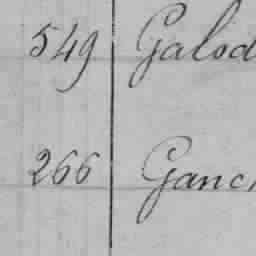 549 Galod
266 Ganc